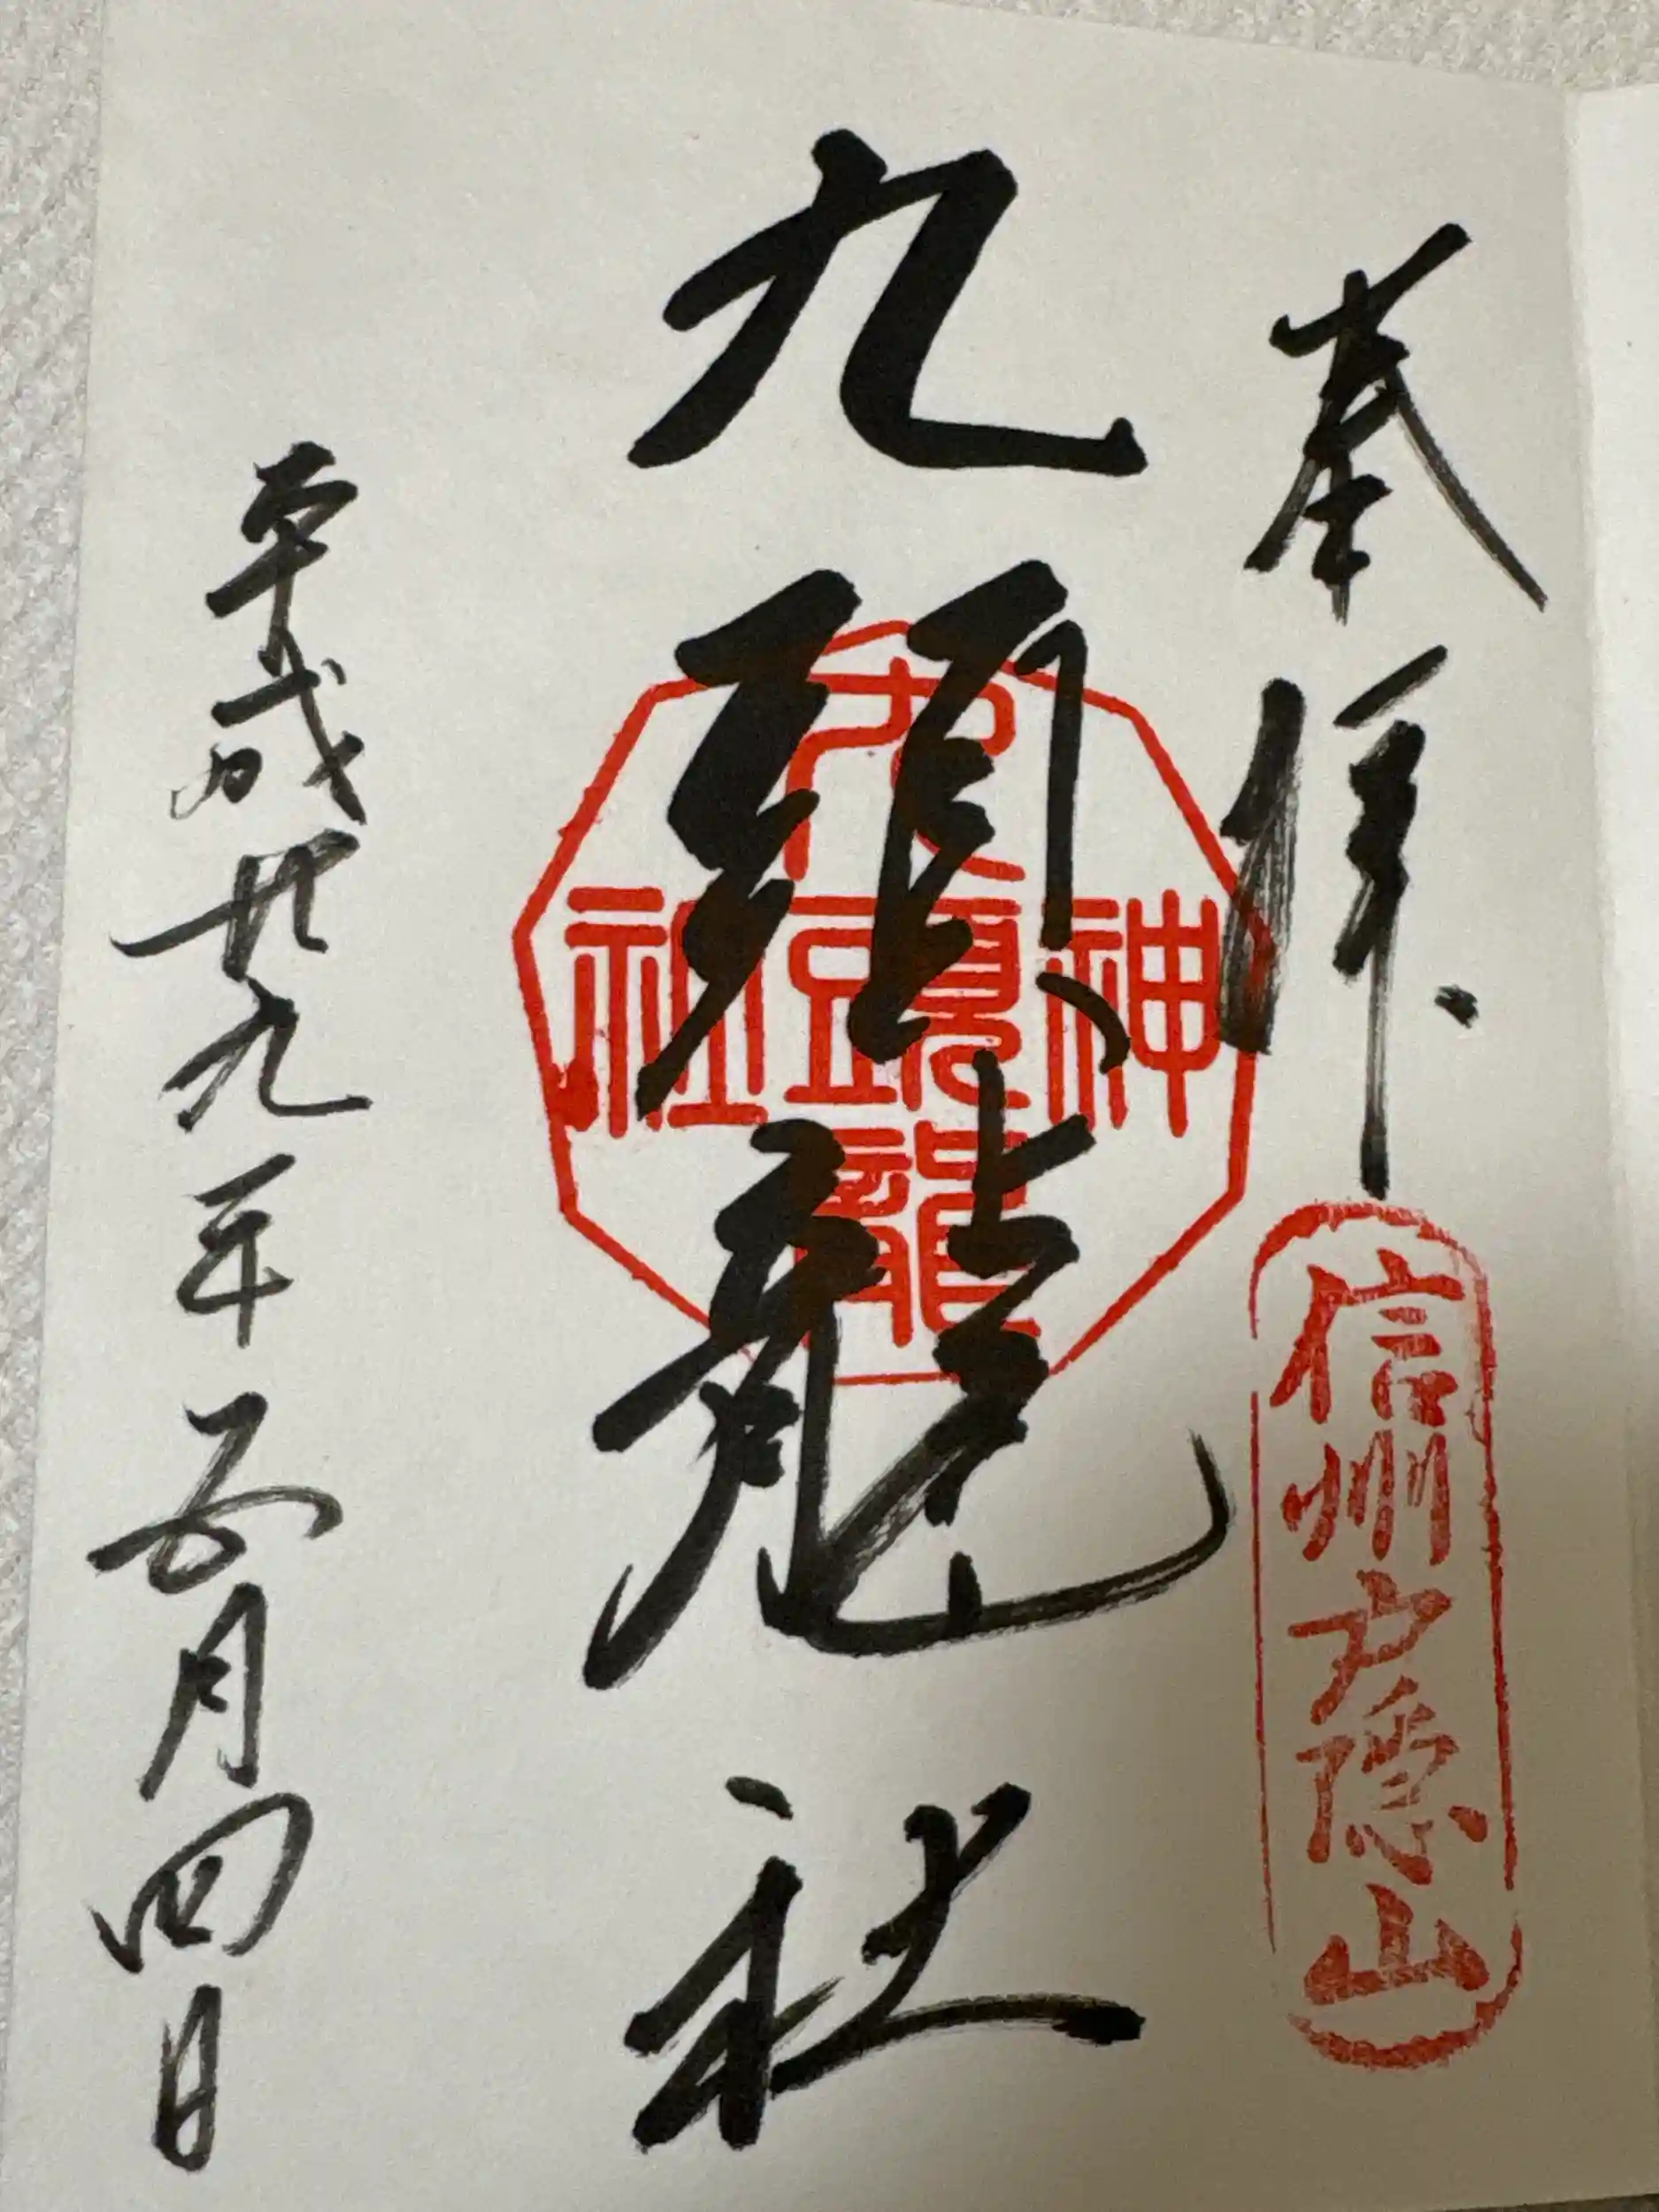 奉拝
信州戸隠山
九頭龍社
九頭龍
神社
平成廿九年五月四日